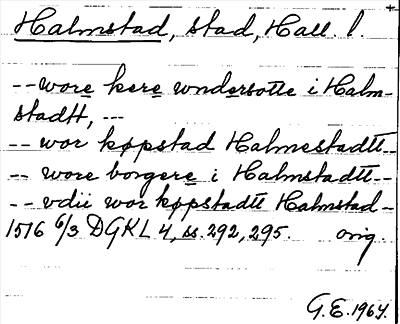 Halmstad, stad, Hall. l.
-- wore kere wndersotte i Halm-
stadtt, ---
-- wor køpstad Halmestadtt--
-- wore borgere i Halmstadtt--
-- vdii wor køpstadtt Halmstad--
1516 6/3 DGKL 4, ss. 292, 295. orig.
G.E. 1964.